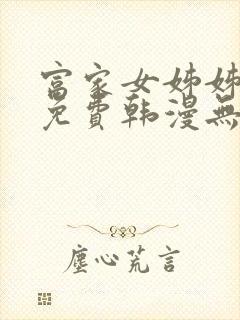 富家女姊姊
免費韩漫無
塵心荒言